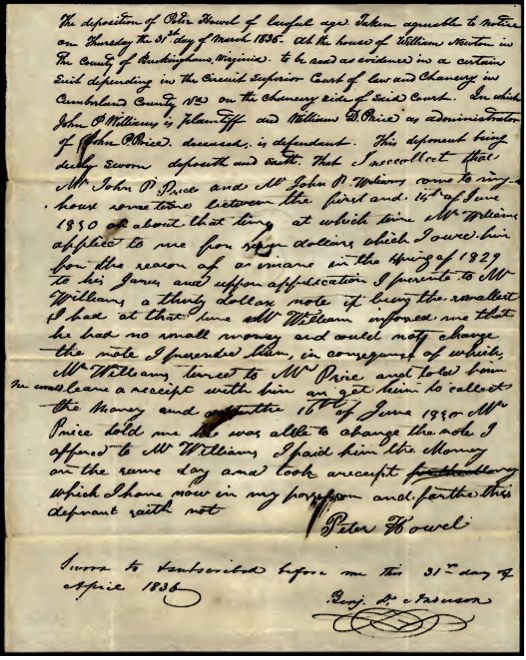 The deposition of Peter Howel of lawful age Taken agreable to notice
on Thursday the 31st day of March 1836. At the house of William Newton in
The County of Buckingham, Virginia. to be used as evidence in a certain
Suit depending in the Circuit Superior Court of law and Chancery in
Cumberland County Va on the Chancery side of said Court. In which
John P Williams is plaintiff and William D. Price as administrator
of John P. Price deceased, is defendent. This deponent being
duly sworn deposeth and saith. That I reccollect that
Mr John P. Price and Mr John P. Wileams came to my
house sometime between the first and 15th of June
1830 or about that time at which time Mr Wileams
applied to me for dollars which I owed him
for the reason of a mare in the spring of 1829
to his James and uppon application I presente to Mr
Williams a thirty dollar note it being the smallest
I had at that time Mr William infomed me that
he had no small money and could not change
the note I presented him, in consequence of which,
Mr Williams turned to Mr Price and told him
he would leave a receipt with him an get him to collect
the Money and the 16th of June 1830 Mr
Price told me he was able to change the note I
offered to Mr Williams I paid him the Money
on the same day and took areceipt for the Money
which I have now in my possession and farthe this
deponant saith not
Peter Howel
Sworn to & subscribed before me this 31st day of
April 1836
Benj. D. Anderson